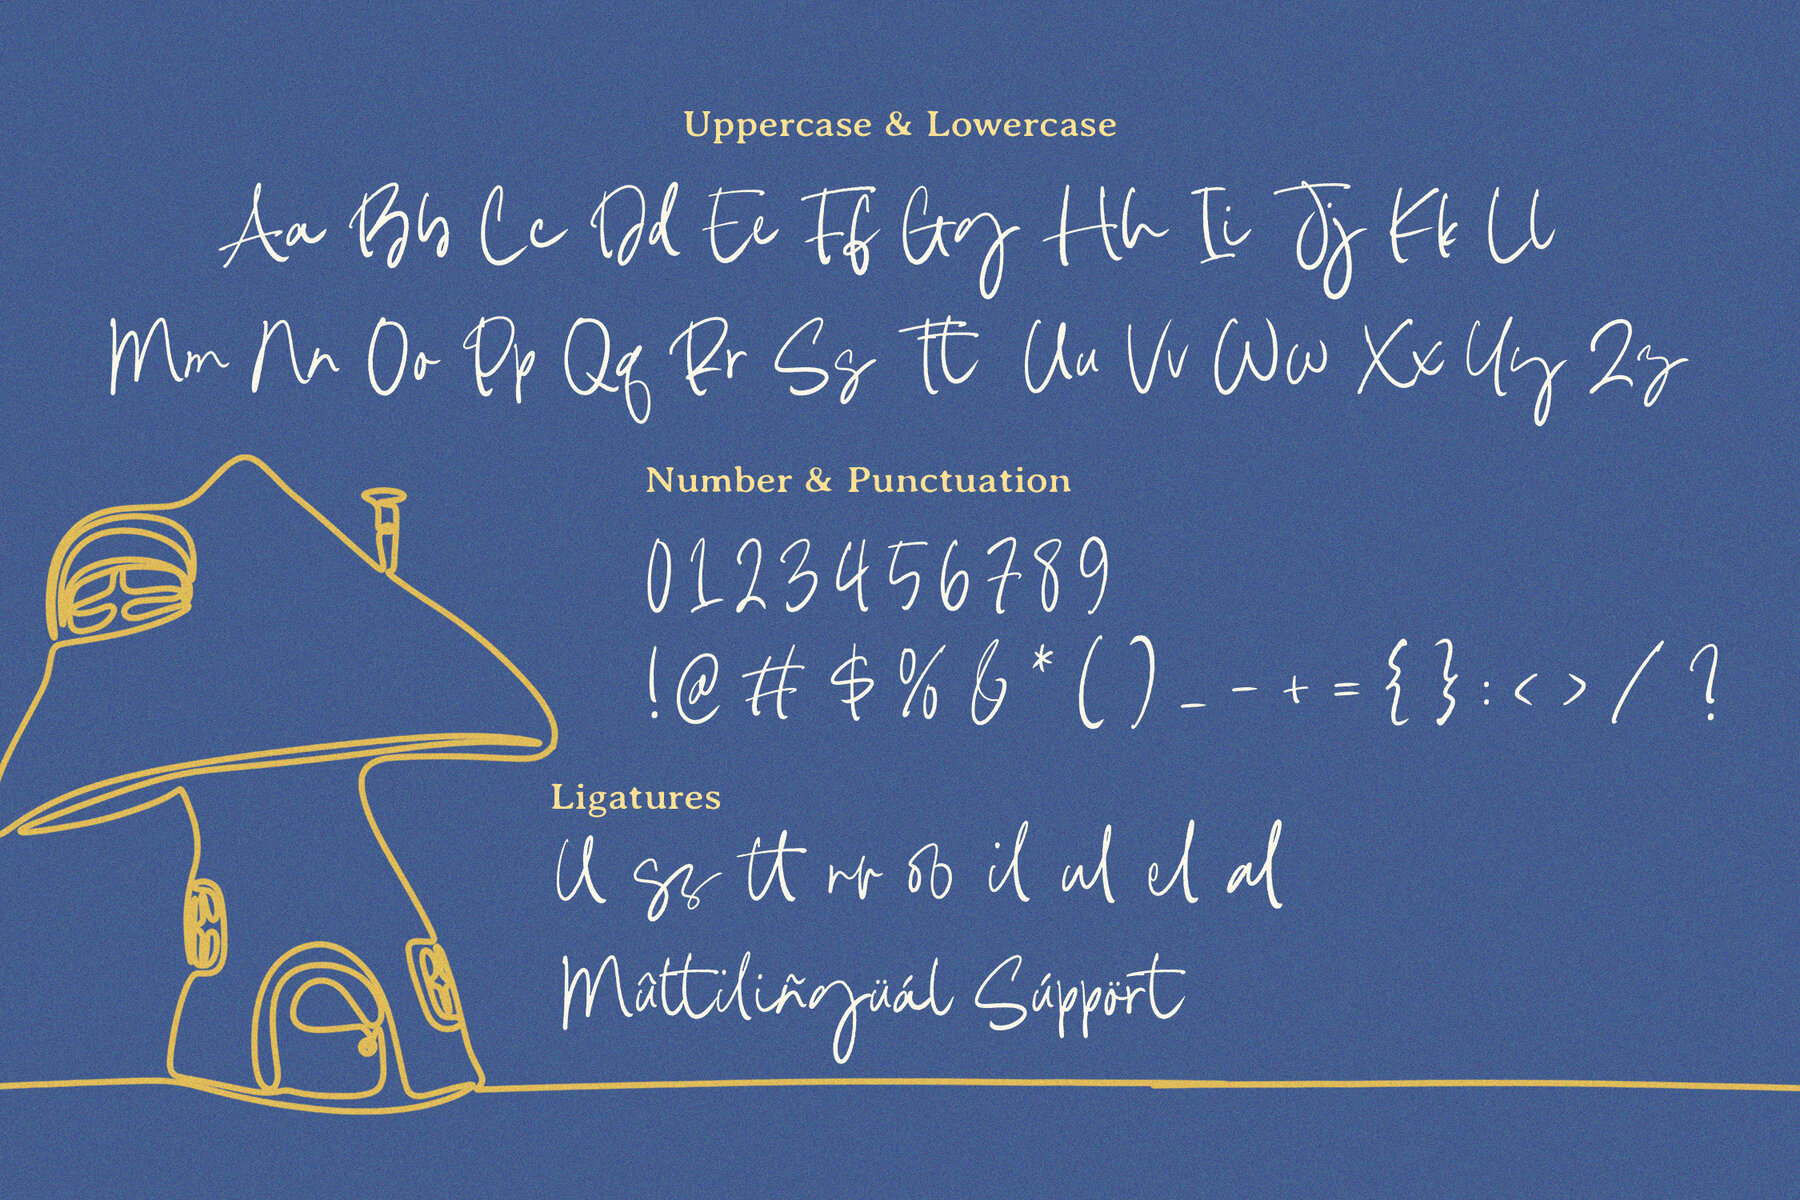 Uppercase & Lowercase
Aa Bb Cc Dd Ee Ff Gg Hh Ii Jj Kk Ll
Mm Nn Oo Pp Qq Rr Ss Tt Uu Vv Ww Xx Yy Zz
Number & Punctuation
0123456789
!@#$%&*()_-+={}:<>/?
Ligatures
ll ss tt rr oo il ul el al
Mâttilïñgüál Súppört